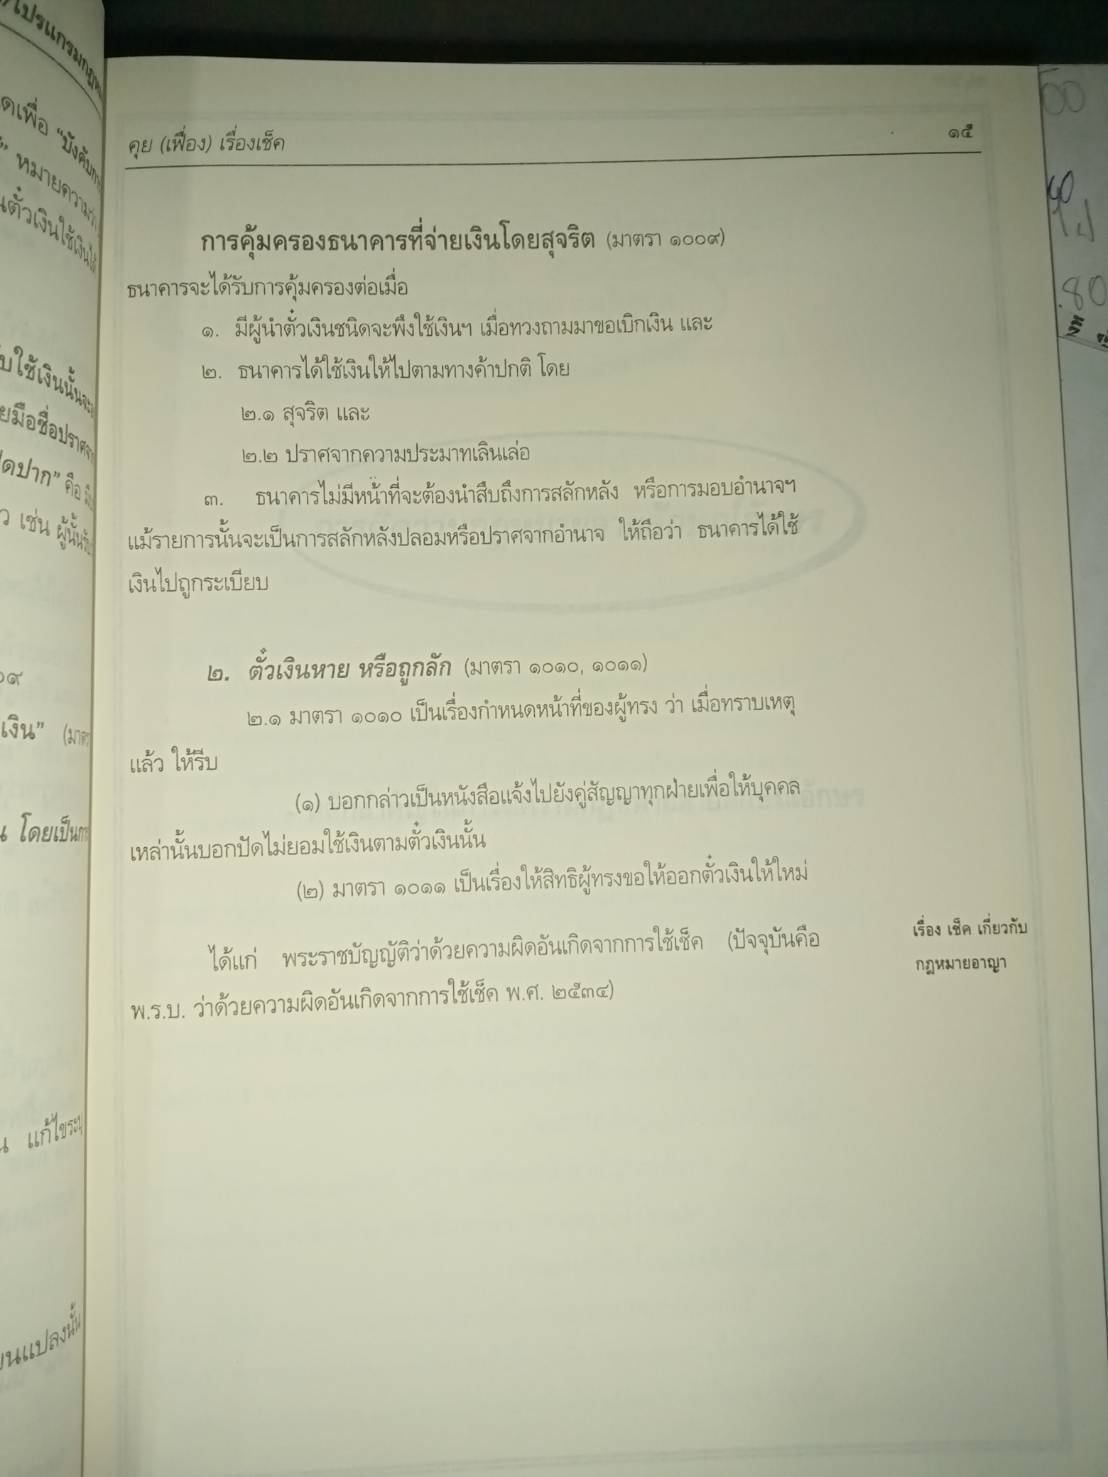 คุย (เฟื่อง) เรื่องเช็ค
๑๕
การคุ้มครองธนาคารที่จ่ายเงินโดยสุจริต (มาตรา ๑๐๐๙)
ธนาคารจะได้รับการคุ้มครองต่อเมื่อ
๑. มีผู้นำตั๋วเงินชนิดจะพึงใช้เงินฯ เมื่อทวงถามมาขอเบิกเงิน และ
๒. ธนาคารได้ใช้เงินให้ไปตามทางค้าปกติ โดย
๒.๑ สุจริต และ
๒.๒ ปราศจากความประมาทเลินเล่อ
๓. ธนาคารไม่มีหน้าที่จะต้องนำสืบถึงการสลักหลัง หรือการมอบอำนาจฯ
แม้รายการนั้นจะเป็นการสลักหลังปลอมหรือปราศจากอำนาจ ให้ถือว่า ธนาคารได้ใช้
เงินไปถูกระเบียบ
๒. ตั๋วเงินหาย หรือถูกลัก (มาตรา ๑๐๑๐, ๑๐๑๑)
๒.๑ มาตรา ๑๐๑๐ เป็นเรื่องกำหนดหน้าที่ของผู้ทรง ว่า เมื่อทราบเหตุ
แล้ว ให้รีบ
(๑) บอกกล่าวเป็นหนังสือแจ้งไปยังคู่สัญญาทุกฝ่ายเพื่อให้บุคคล
เหล่านั้นบอกปัดไม่ยอมใช้เงินตามตั๋วเงินนั้น
(๒) มาตรา ๑๐๑๑ เป็นเรื่องให้สิทธิผู้ทรงขอให้ออกตั๋วเงินให้ใหม่
เรื่อง เช็ค เกี่ยวกับ
กฎหมายอาญา
ได้แก่ พระราชบัญญัติว่าด้วยความผิดอันเกิดจากการใช้เช็ค (ปัจจุบันคือ
พ.ร.บ. ว่าด้วยความผิดอันเกิดจากการใช้เช็ค พ.ศ. ๒๕๓๔)